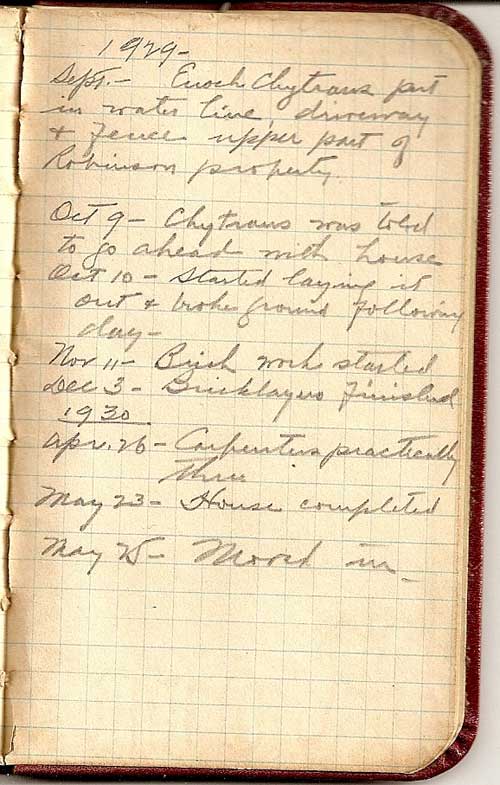 1929-
Sept. - Enoch Chytraus put
in water line, driveway
& fence upper part of
Robinson property.
Oct 9 - Chytraus was told
to go ahead with house
Oct 10 - Started laying it
out & broke ground following
day -
Nov 11 - Brick work started
Dec 3 - Bricklayers finished
1930
Apr. 26 - Carpenters practically
thru
May 23 - House completed
May 25 - Moved in -